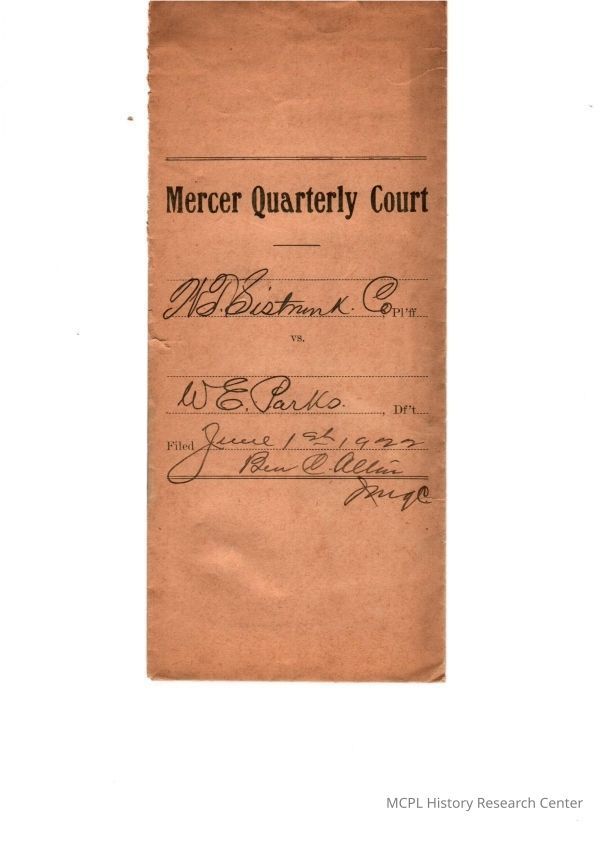 Mercer Quarterly Court
W.T. Sistrunk. Co Pl'ff
vs.
W E. Parks. , Df't.
Filed June 1st, 1922
Ben C. Allin
MCPL History Research Center